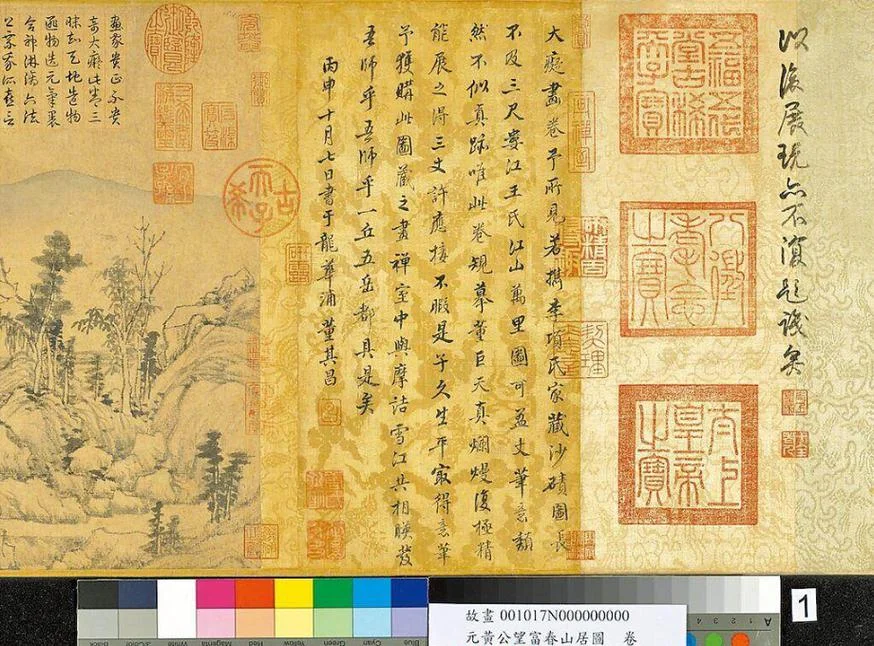 以後展玩亦不復題識矣
五福五代堂古稀天子寶
八徵耄念之寶
太上皇帝之寶
大癡畫卷予所見若檇李項氏家藏沙磧圖長
不及三尺婁江王氏江山萬里圖可盈丈筆意頹
然不似真跡唯此卷規摹董巨天真爛熳復極精
能展之得三丈許應接不暇是子久生平最得意筆
予獲購此圖藏之畫禪室中與摩詰雪江共相映發
吾師乎吾師乎一丘五岳都具是矣
丙申十月七日書于龍華浦董其昌
古稀天子
乾隆御覽之寶
畫家貴正不貴
奇大癡此卷三
天地造物
物造元氣
淋漓六法
1
故畫 001017N000000000
元黃公望富春山居圖 卷
Black 3/Color White Magenta Red Yellow Green Cyan Blue
A 1 2 3 4